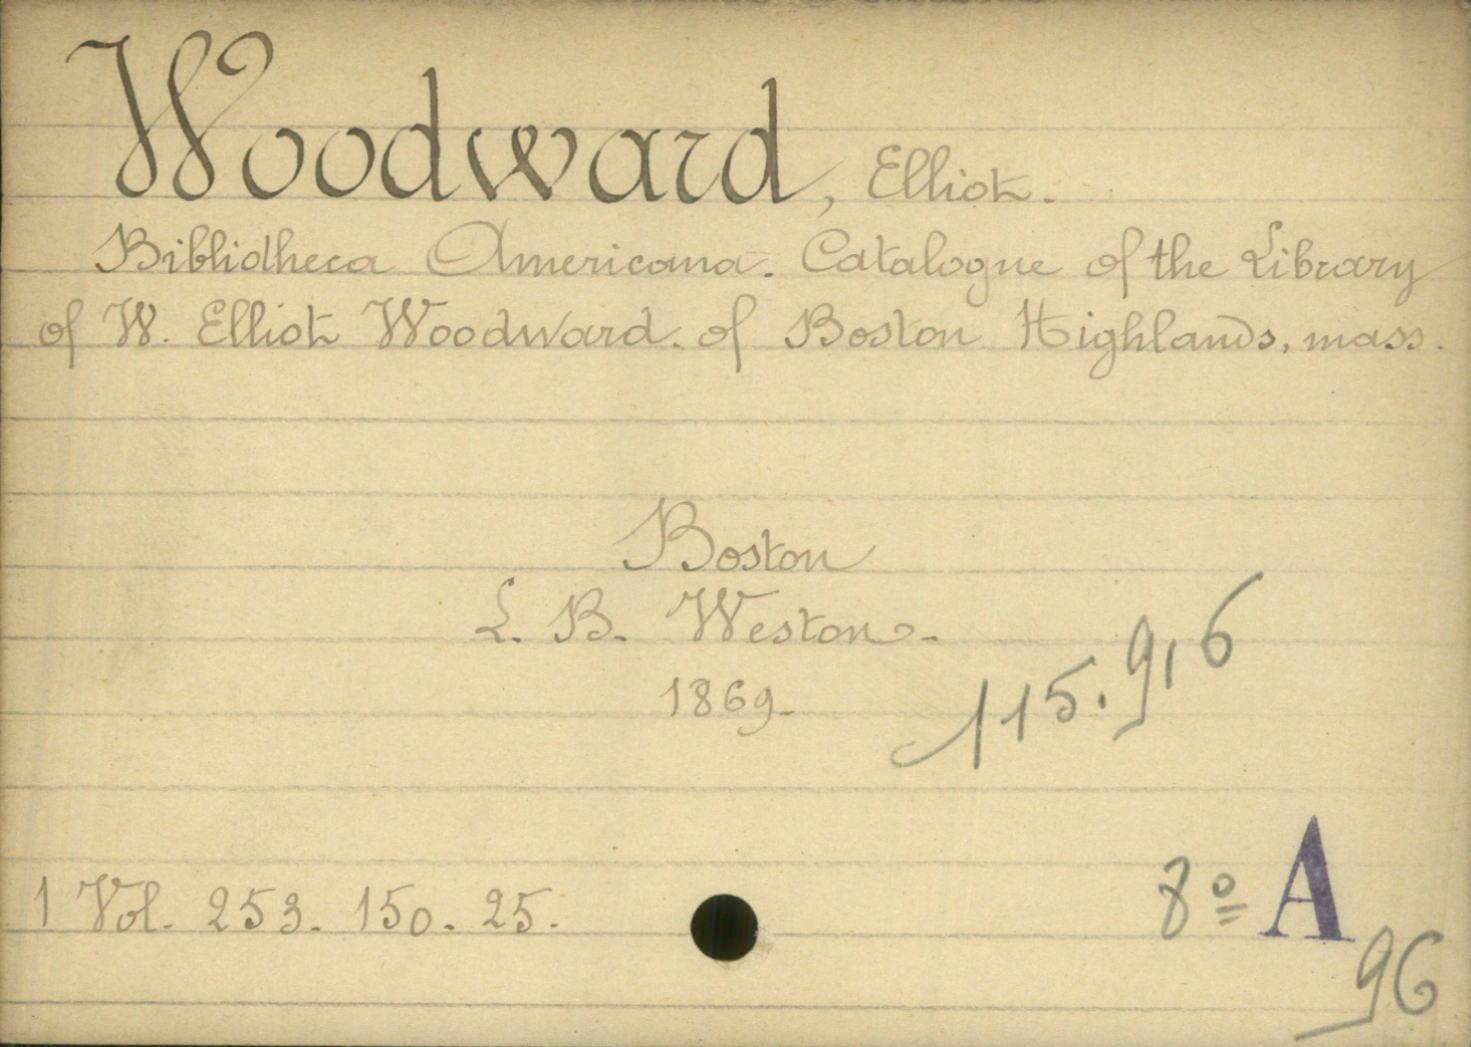 Woodward, Elliot.
Bibliotheca Americana. Catalogue of the Library
of W. Elliot Woodward. of Boston Highlands, mass.
Boston
L. B. Weston.
1869.
115.916
1 Vol. 253. 150. 25.
8º A
96